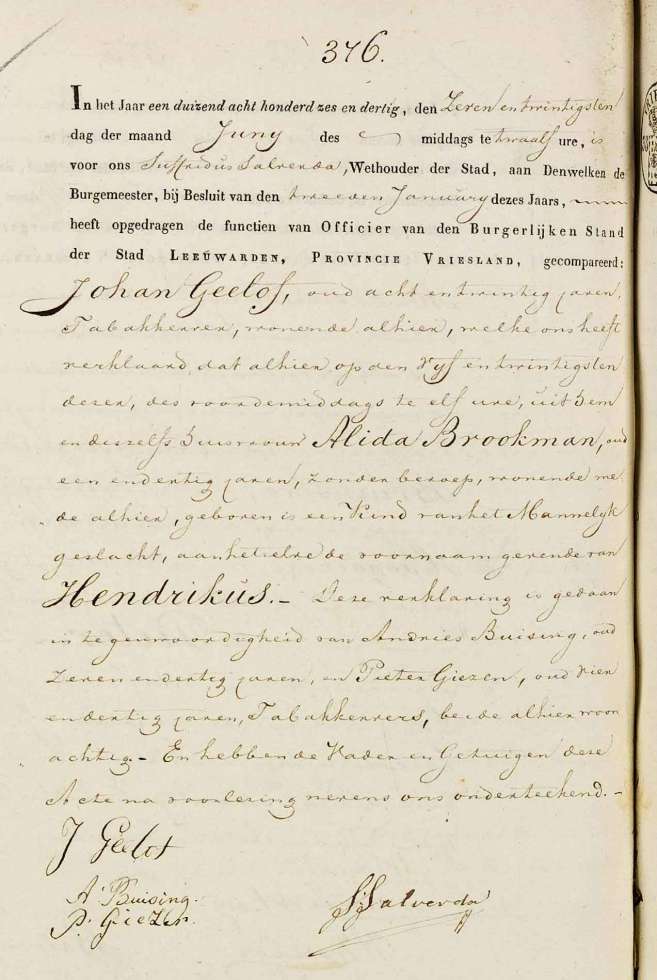 376.
In het Jaar een duizend acht honderd zes en dertig, den Zeven en twintigsten
dag der maand Juny des middags te twaalf ure, is
voor ons Suffridus Salverda, Wethouder der Stad, aan Denwelken de
Burgemeester, bij Besluit van den tweeden January dezes Jaars,
heeft opgedragen de functien van Officier van den Burgerlijken Stand
der Stad LEEUWARDEN, PROVINCIE VRIESLAND, gecompareerd:
Johan Geelof, oud acht en twintig jaren,
Tabakkerver, wonende alhier, welke ons heeft
verklaard, dat alhier op den Vyf en twintigsten
dezer, des voordemiddags te elf ure, uit Hem
en deszelfs Huisvrouw Alida Brookman, oud
een en dertig jaren, zonder beroep, wonende me
de alhier, geboren is een Kind van het Mannelyk
geslacht, aan hetwelk de voornaam gevende van
Hendrikus. - Deze verklaring is gedaan
in tegenwoordigheid van Andries Buising, oud
Zeven en dertig jaren, en Pieter Giezen, oud Vier
en dertig jaren, Tabakkervers, beide alhier woon
achtig. - En hebben de Vader en Getuigen deze
Acte na voorlezing nevens ons onderteekend. -
J Geelof
A. Buising.
P. Giezen.
S. Salverda